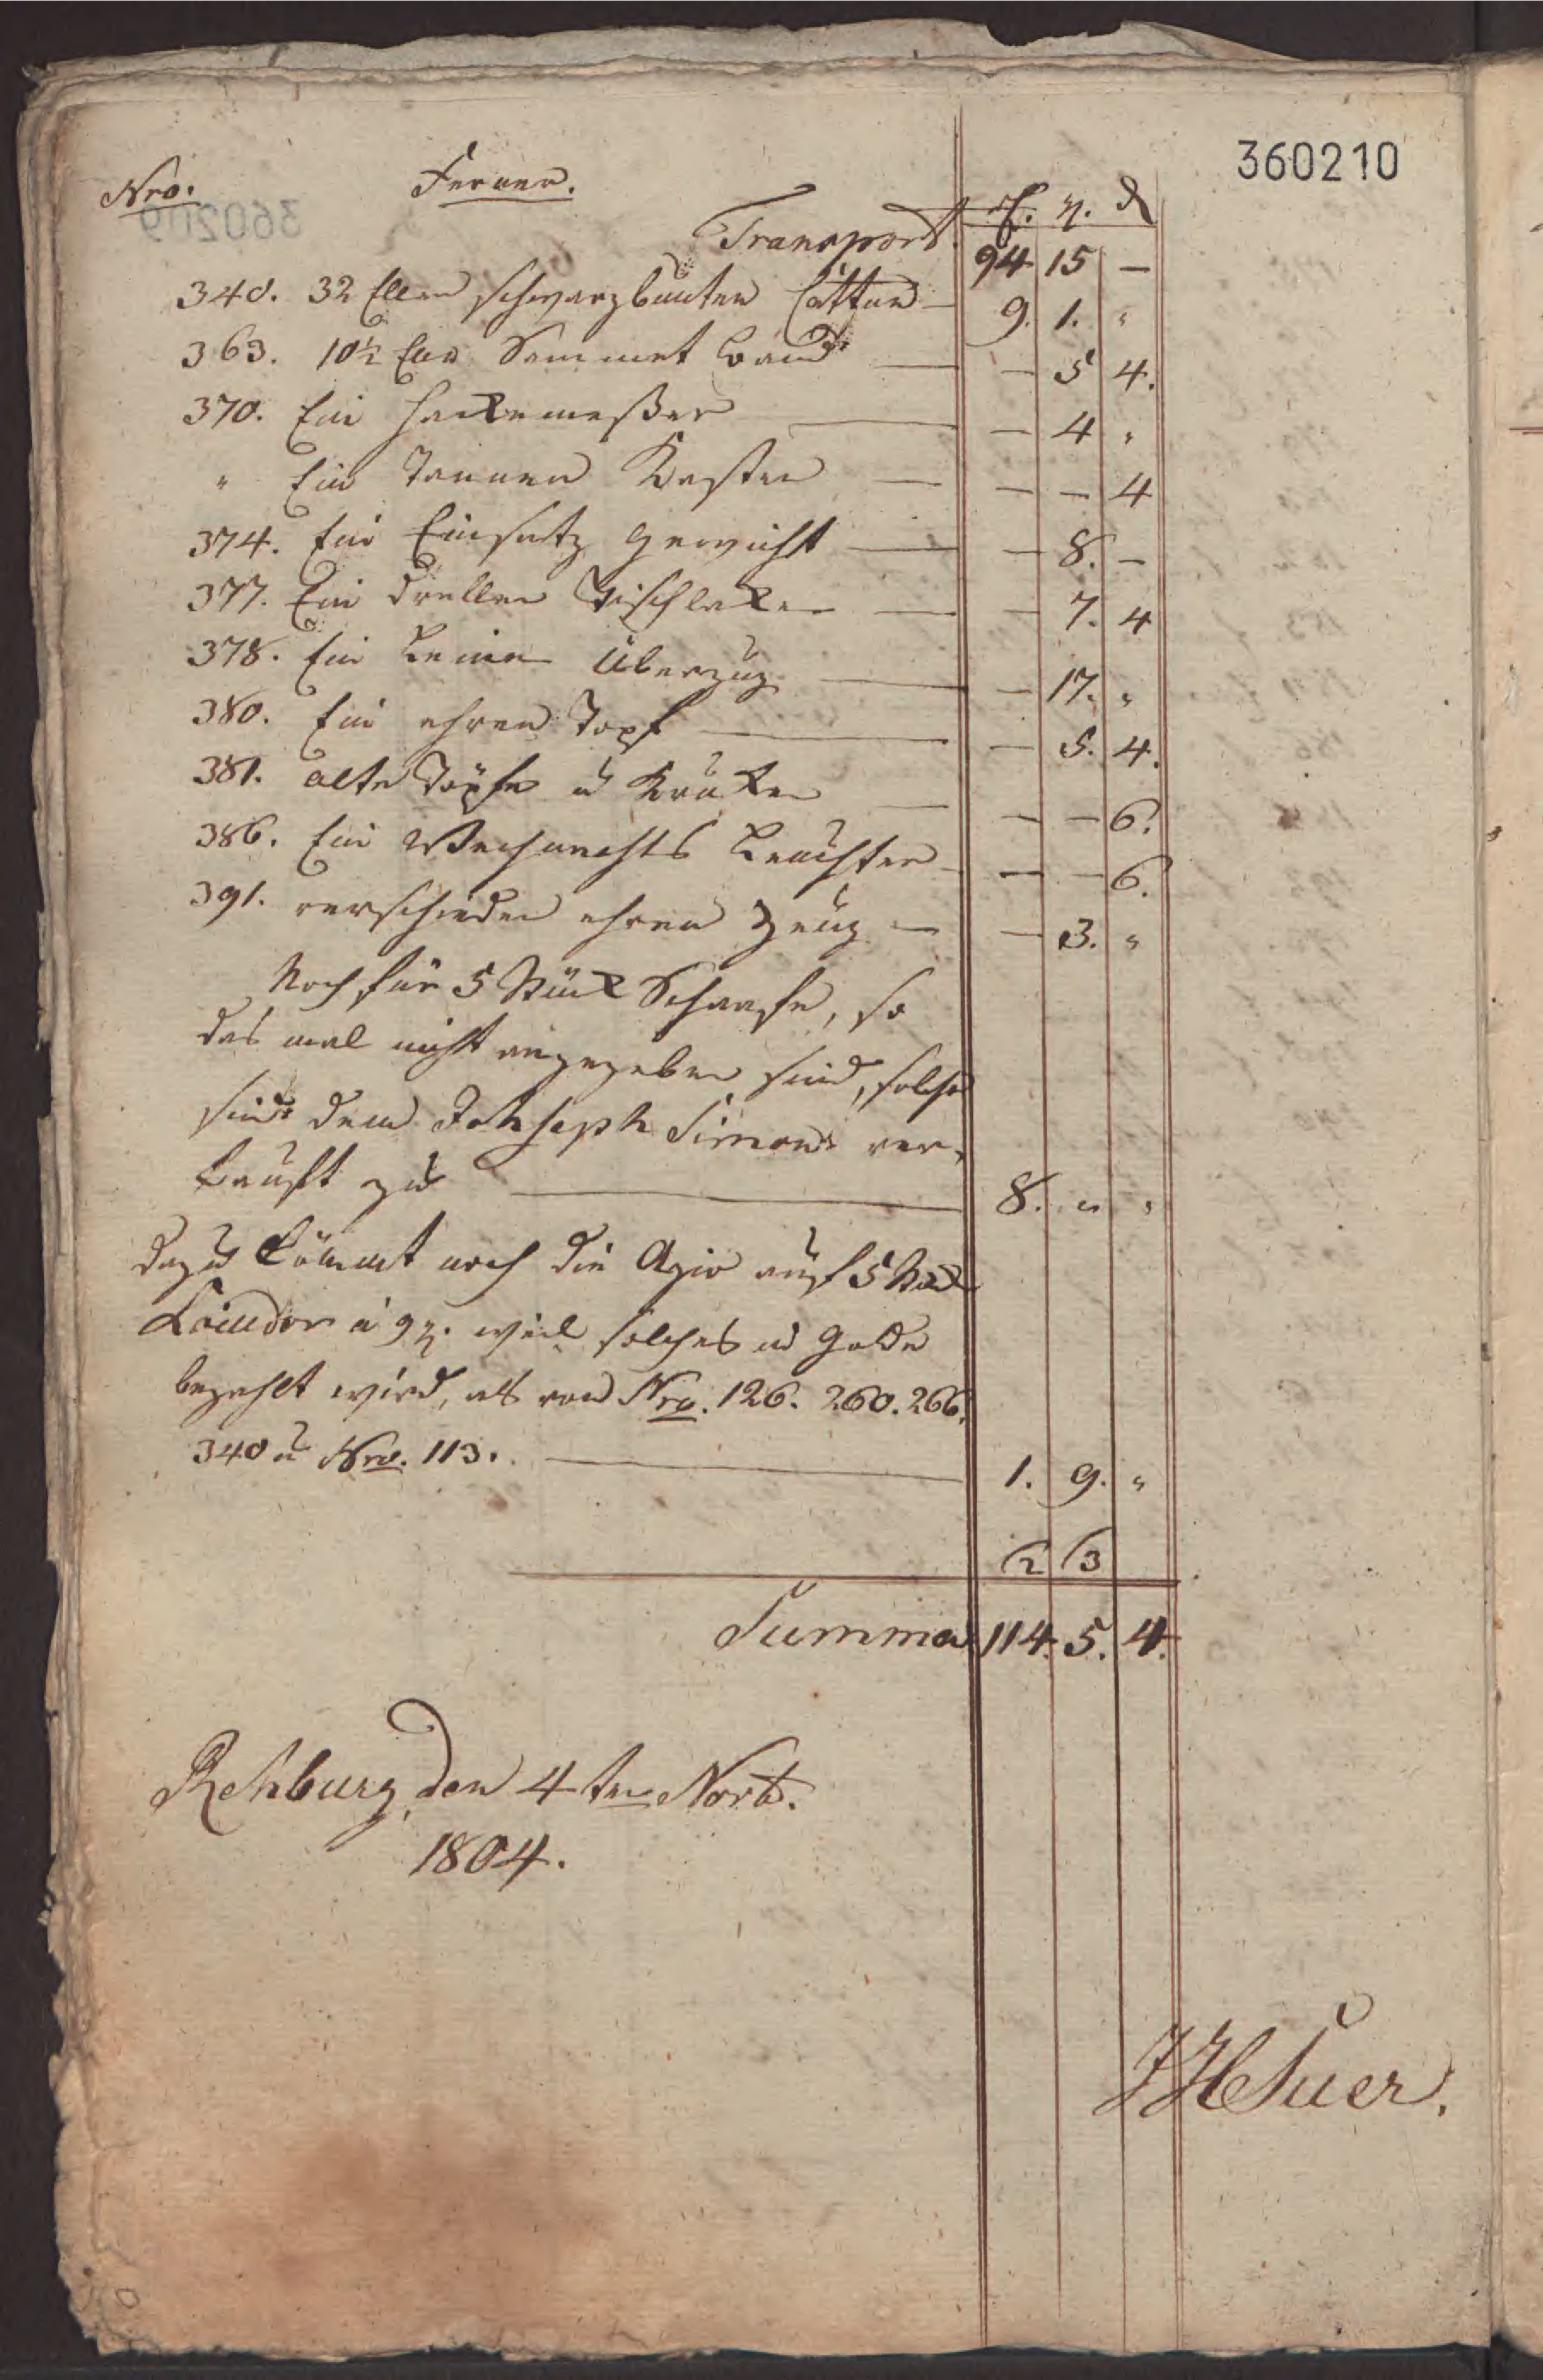 360210
Nro. Ferner. rh. gr. d
Transport. 94 15 —
340. 32 Ellen schwarzbunten Cattun — 9. 1. "
363. 10½ Ellen Sammet Band — — 5 4.
370. Ein Hackemeßer — — 4 "
" Ein Tannen Kasten — — — 4
374. Ein Einsatz Gewicht — — 8. —
377. Ein drellen Tischlaken — — 7. 4
378. Ein Leinen Überzug — — 17. "
380. Ein ehren Topf — — 5. 4.
381. alte Töpfe u Kruken — — — 6.
386. Ein Weihnachts Leuchter — — — 6.
391. verschieden ehren Zeug — — 3. "
Noch für 5 Stück Schaafe, so
das mal nicht angegeben sind, solche
sind dem Johseph Simon ver-
kauft zu — 8. " "
dazu kömmt noch die Agio auf 5 Stück
Louisdor à 9 gr. weil solches in Golde
bezahlt wird, als von Nro. 126. 260. 266.
340 u Nro. 113. — 1. 9. "
2 3
Summa 114. 5. 4.
Rehburg, den 4ten Novb.
1804.
Suer.